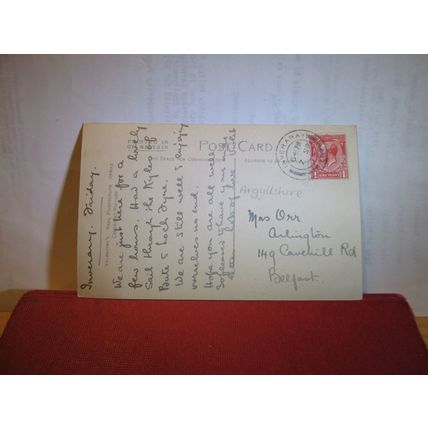 POST CARD
INVERARAY
Argyllshire
Mrs Orr
Arlington
149 Cavehill Rd
Belfast
Inveraray. Friday.
We are just here for a
few hours. Had a lovely
sail through the Kyles of
Bute & Loch Fyne.
We are still well & enjoy
ourselves no end.
Hope you are all well.
So pleased to have your
letter. Lots of love